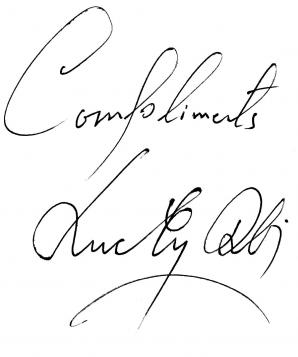 Compliments
Lucky Obi